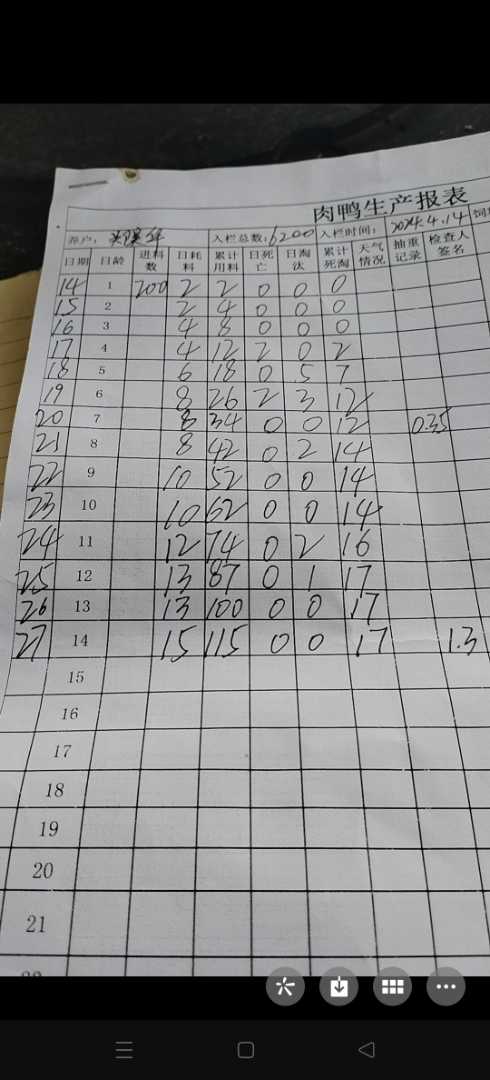 肉鸭生产报表
养户: 入栏总数: 6200 入栏时间: 2024.4.14 饲
日期 日龄 进料数 日耗料 累计用料 日死亡 日淘汰 累计死淘 天气情况 抽重记录 检查人签名
14 1 200 2 2 0 0 0
15 2 2 4 0 0 0
16 3 4 8 0 0 0
17 4 4 12 2 0 2
18 5 6 18 0 5 7
19 6 8 26 2 3 12
20 7 8 34 0 0 12 0.35
21 8 8 42 0 2 14
22 9 10 52 0 0 14
23 10 10 62 0 0 14
24 11 12 74 0 2 16
25 12 13 87 0 1 17
26 13 13 100 0 0 17
27 14 15 115 0 0 17 1.3
15
16
17
18
19
20
21